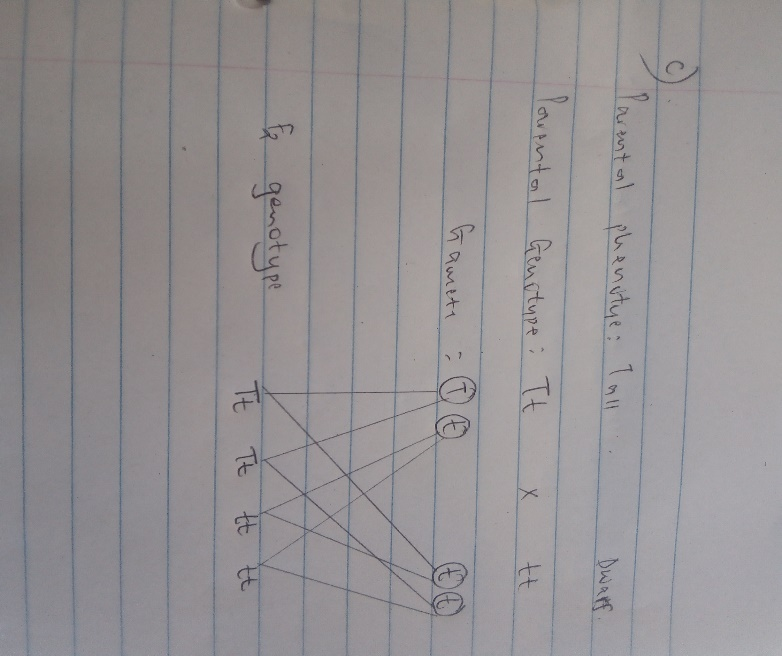 c)
Parental phenotye: Tall Dwarf.
Parental Genotype: Tt x tt
Gamete : T t t t
F2 genotype
Tt Tt tt tt